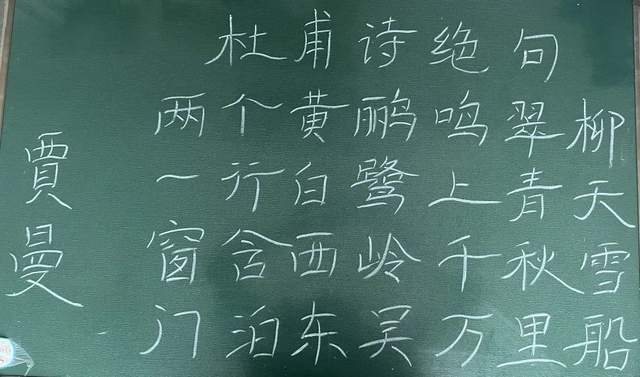 杜甫诗绝句
两个黄鹂鸣翠柳
一行白鹭上青天
窗含西岭千秋雪
门泊东吴万里船
賈曼